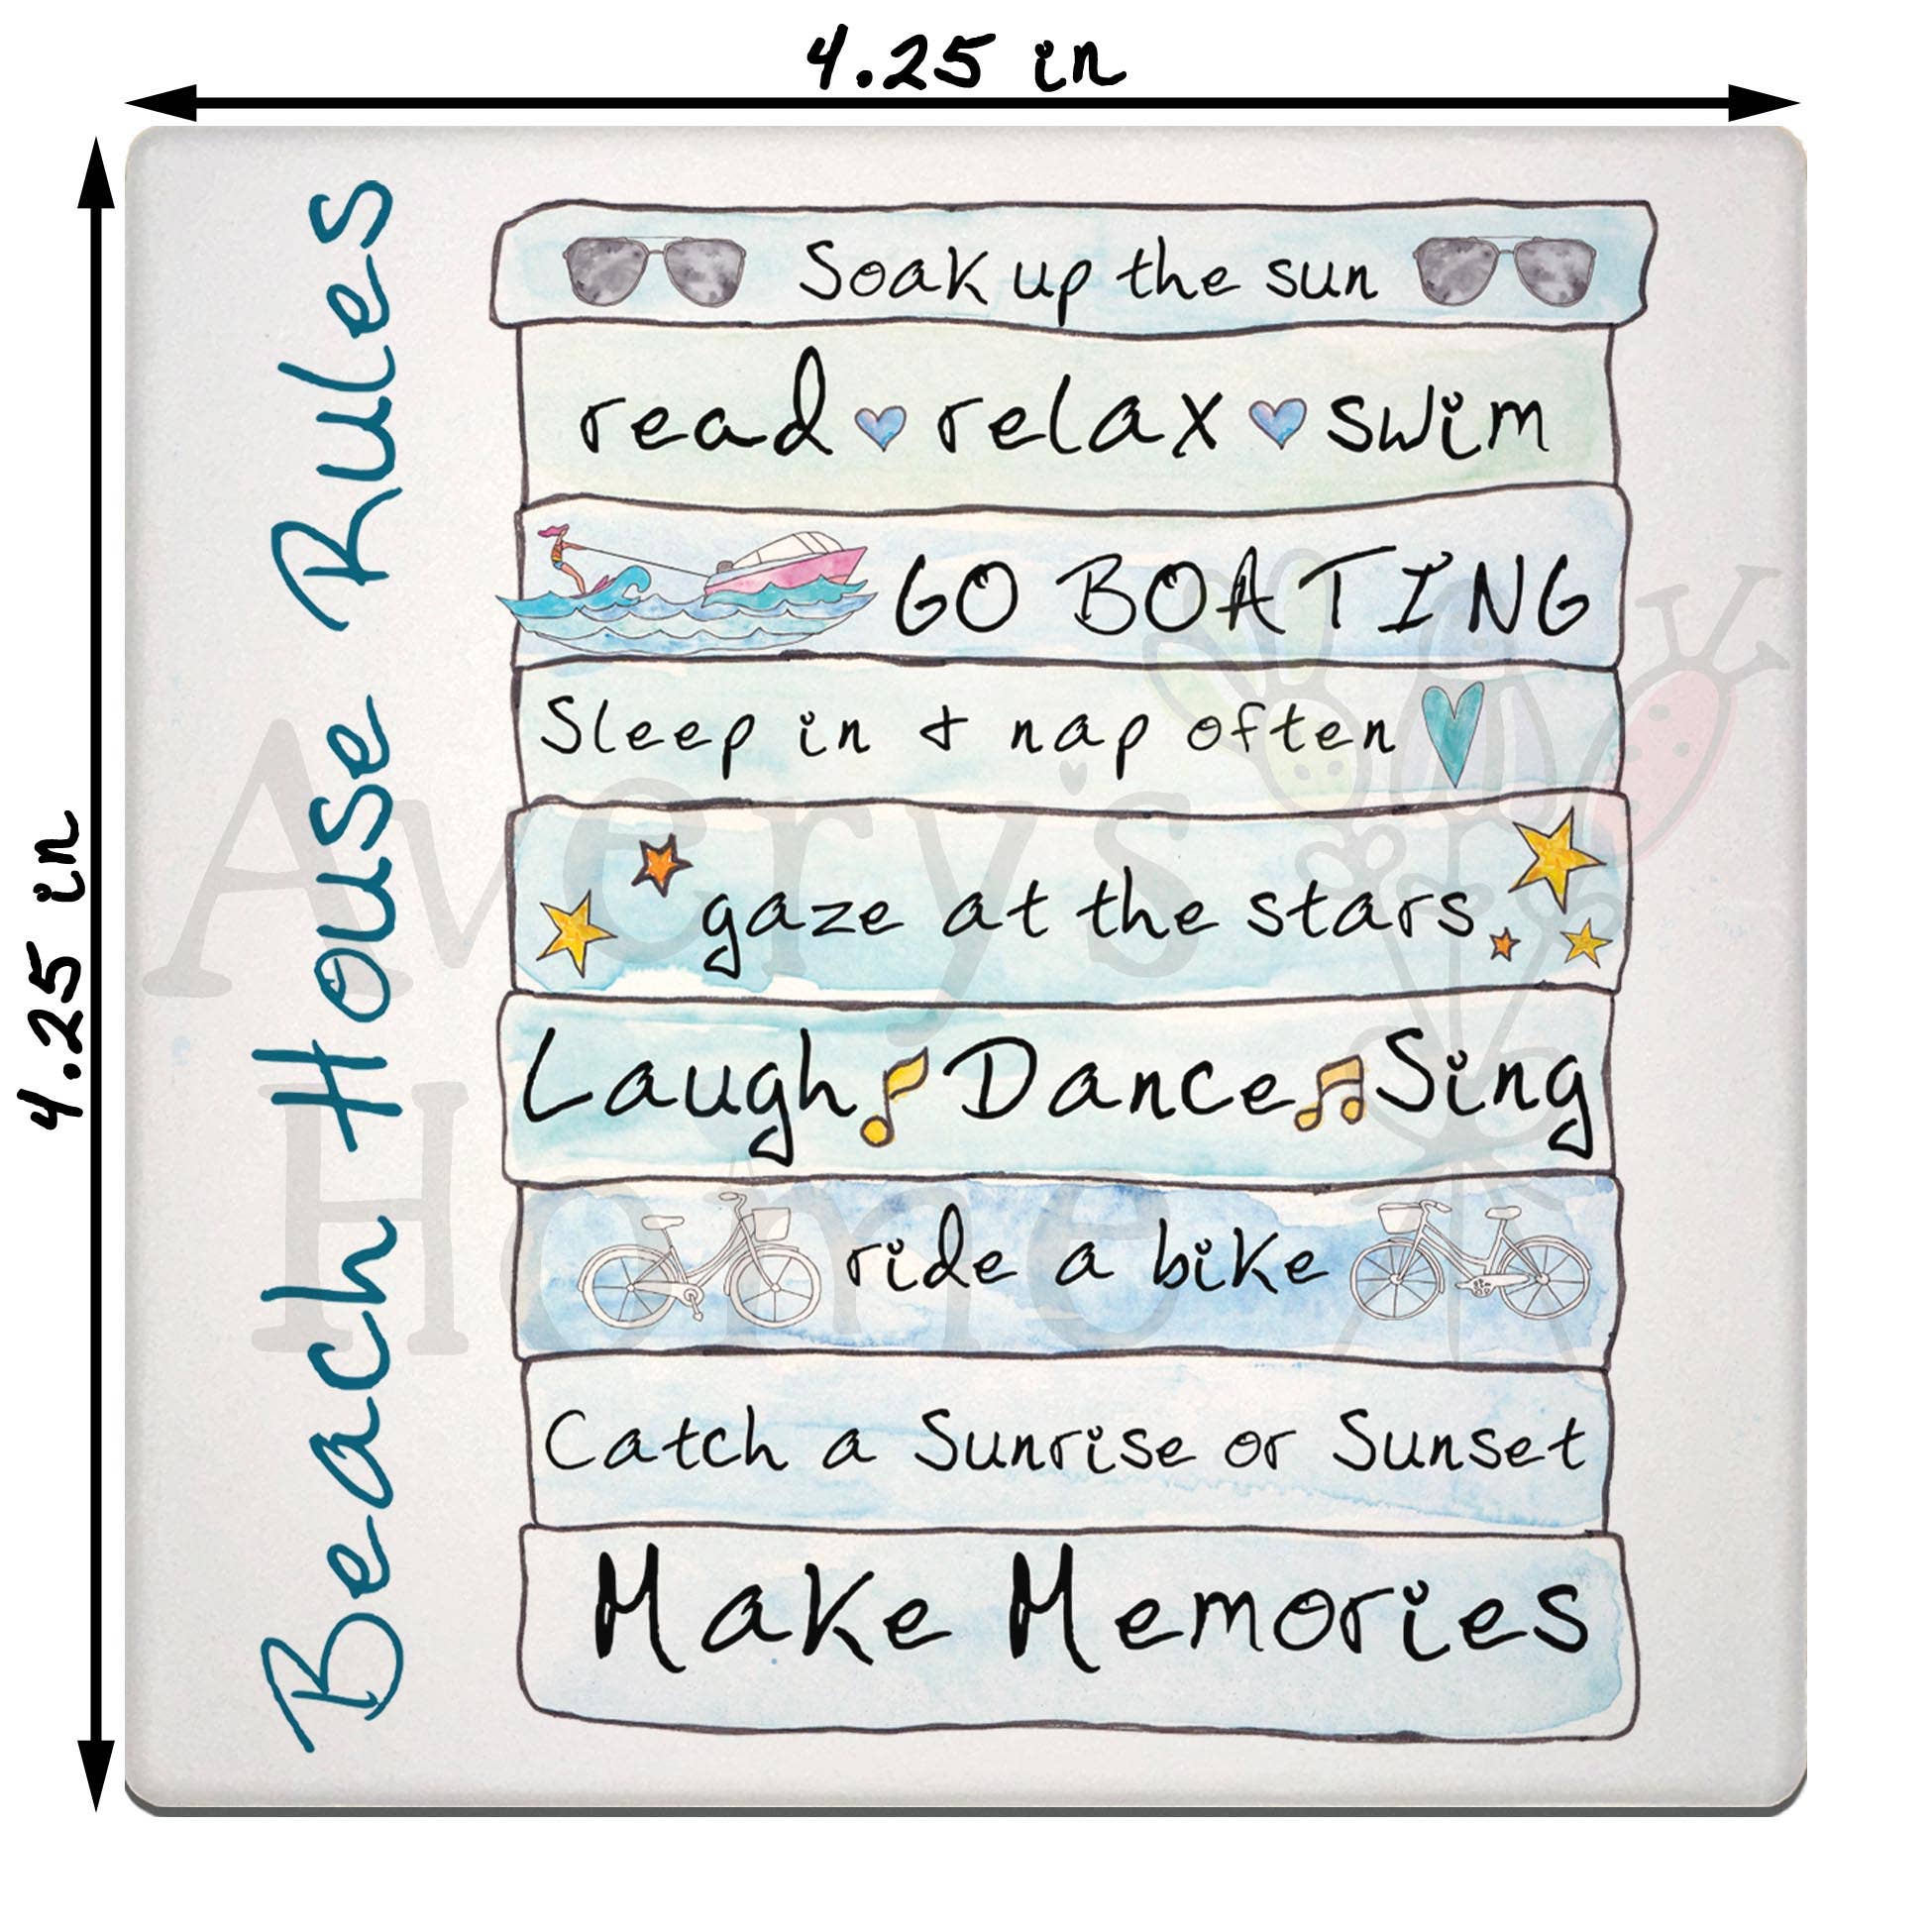 4.25 in
4.25 in
Beach House Rules
Soak up the sun
read relax swim
GO BOATING
Sleep in & nap often
gaze at the stars
Laugh Dance Sing
ride a bike
Catch a Sunrise or Sunset
Make Memories
Avery's
Home